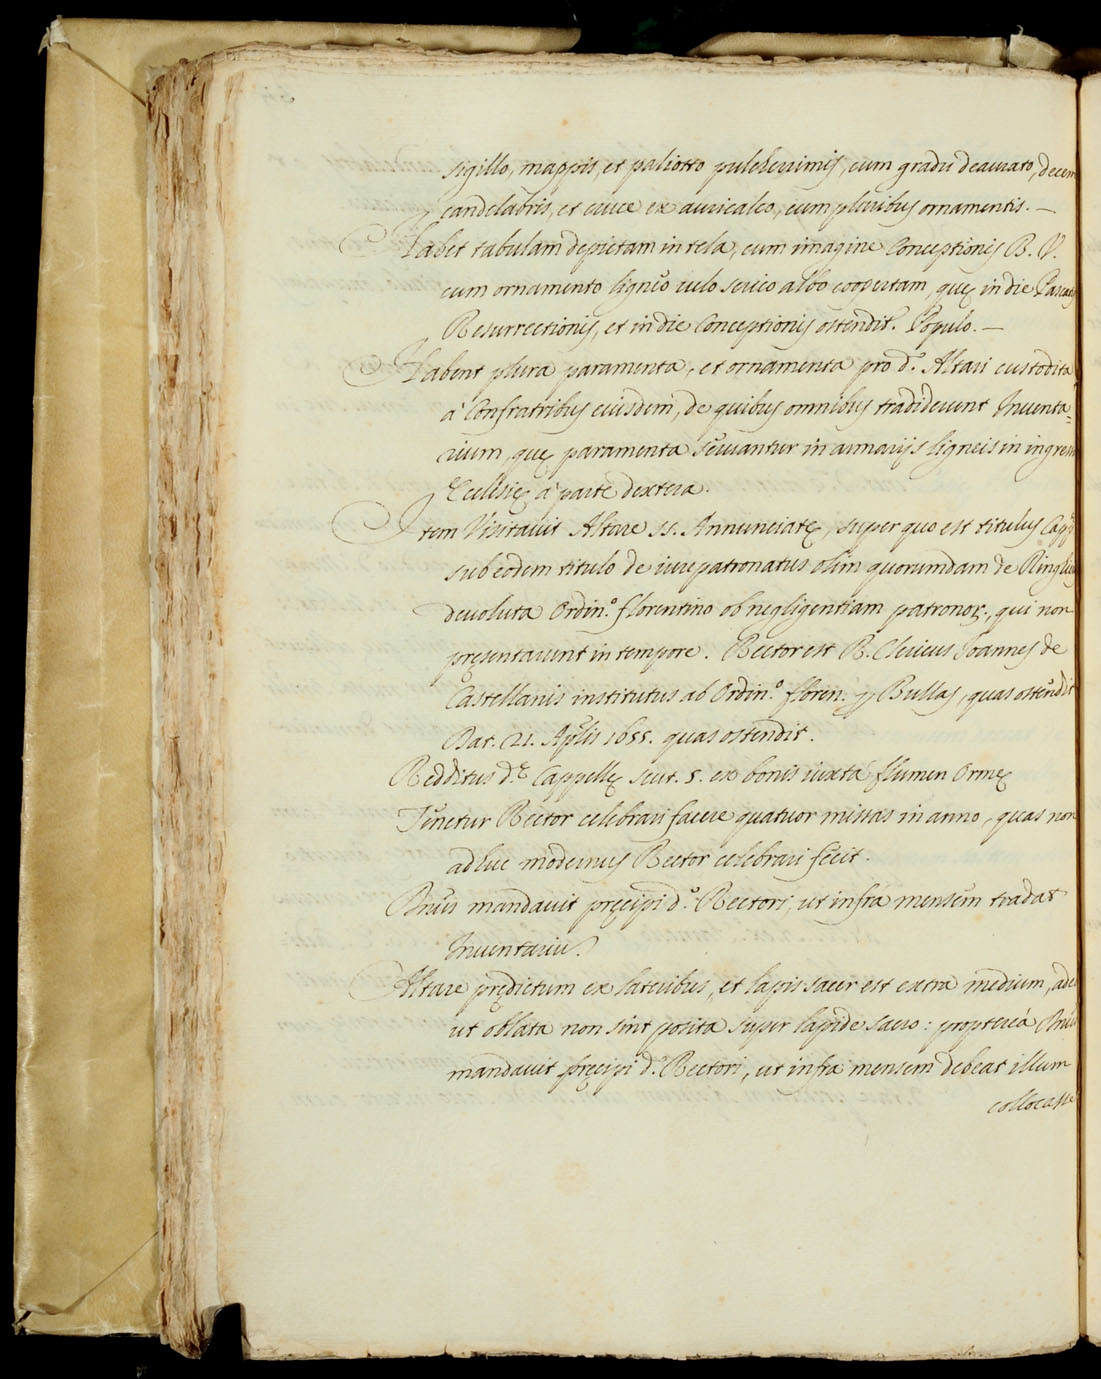 sigillo, mappis, et paliotto pulcherrimis, cum gradu deaurato, decem
candelabris, et cruce ex auricalco, cum pluribus ornamentis. —
Habet tabulam depictam in tela, cum imagine Conceptionis B. V.
cum ornamento ligneo velo serico albo coopertam, quę in die Pascatis
Resurrectionis, et in die Conceptionis ostendit. Populo. —
Habent plura paramenta, et ornamenta pro d.º Altari custodita
à Confratribus eiusdem, de quibus omnibus tradiderunt Inventa=
rium, quę paramenta servantur in armarijs ligneis in ingressu
Ecclesię à parte dextera.
Item Visitavit Altare SS. Annunciatę, super quo est titulus Capp.
sub eodem titulo de iure patronatus olim quorumdam de
devoluta Ordin.º florentino ob negligentiam patronor., qui non
pręsentarunt in tempore. Rector est R. Clericus Joannes de
Castellanis institutus ab Ordin.º floren. p Bullas, quas ostendit
Dat. 21. Aplis 1655. quas ostendit.
Redditus d.ę Cappellę scut. 5. ex bonis iuxta flumen Ormę
Tenetur Rector celebrari facere quatuor missas in anno, quas non
adhuc modernus Rector celebrari fecit.
Rmus mandavit pręcipi d.º Rectori, ut infra mensem tradat
Inventariu.
Altare prędictum ex lateribus, et lapis sacer est extra medium, adeo
ut oblata non sint posita super lapide sacro: proptereà Rmus
mandavit pręcipi d.º Rectori, ut infra mensem debeat illum
collocasse